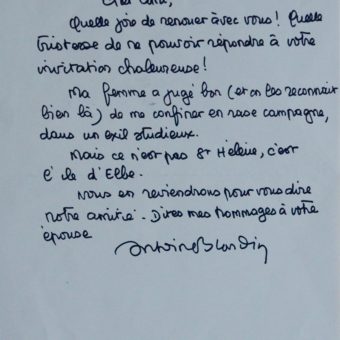 Quelle joie de renouer avec vous ! Quelle
tristesse de ne pouvoir répondre à votre
invitation chaleureuse !
Ma femme a jugé bon (et on les reconnait
bien là) de me confiner en rase campagne,
dans un exil studieux.
Mais ce n'est pas Ste Hélène, c'est
l'île d'Elbe.
Nous en reviendrons pour vous dire
notre amitié. Dites mes hommages à votre
épouse
Antoine Blondin